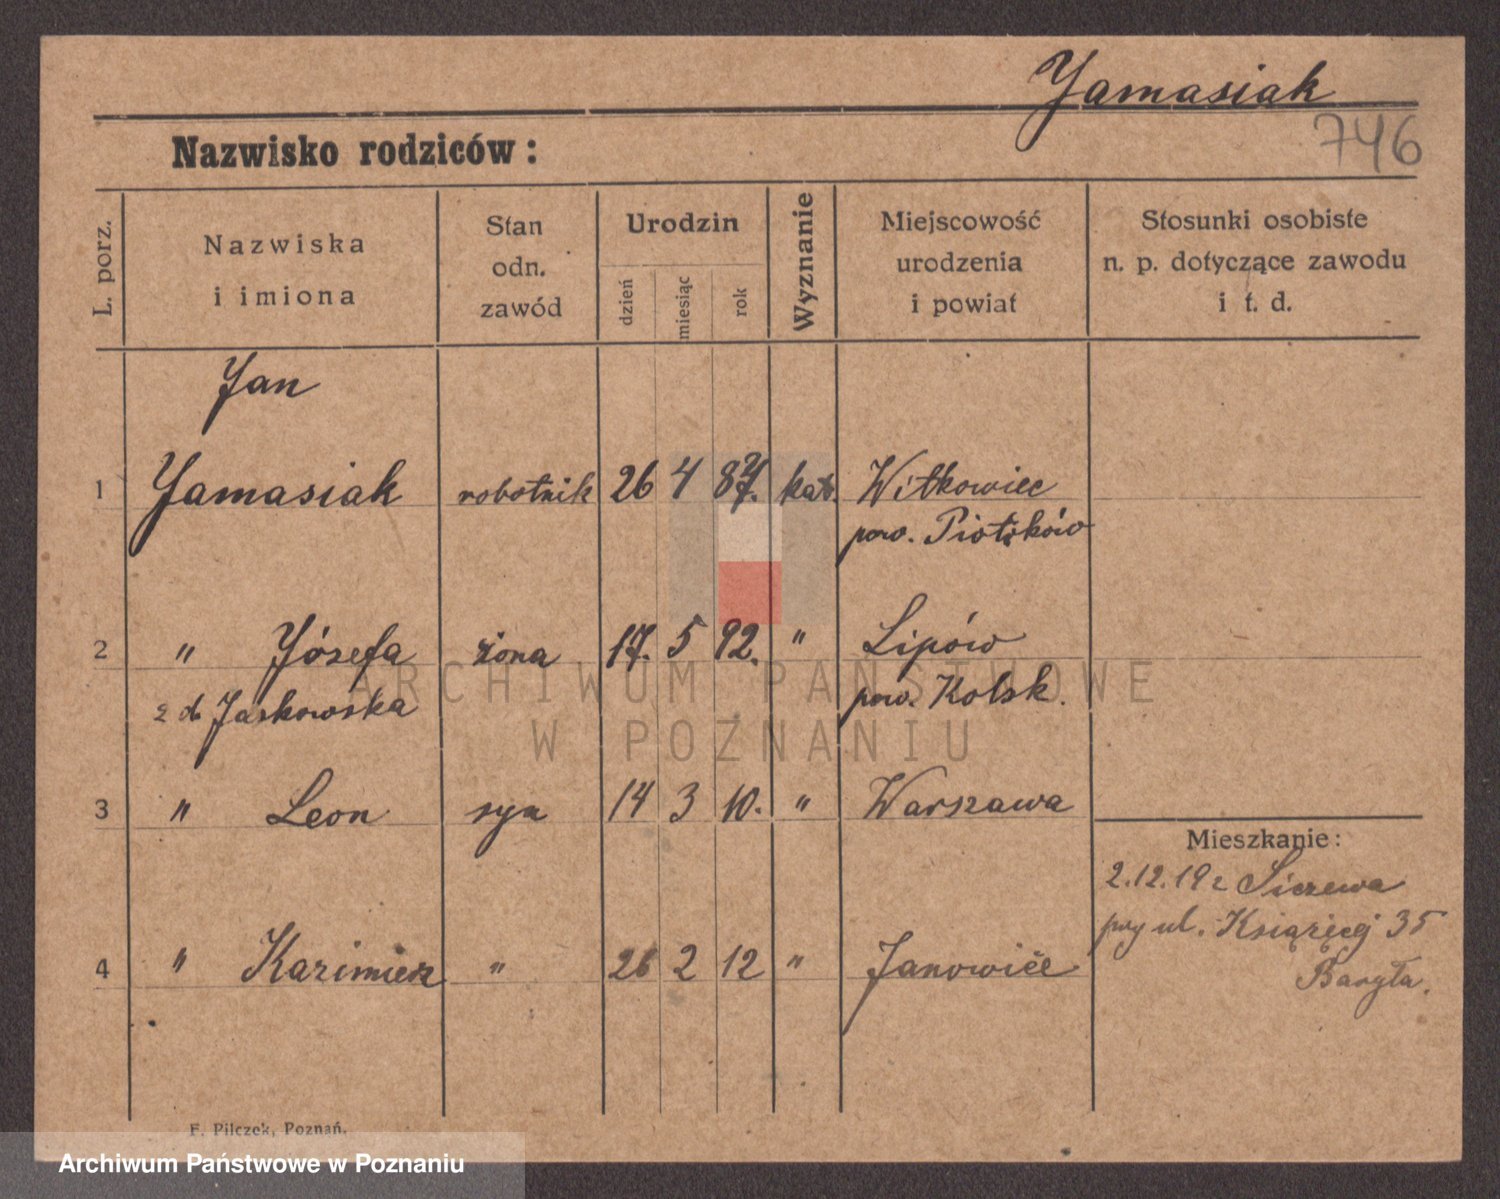 Jamasiak
746
Nazwisko rodziców:
L. porz.
Nazwiska
i imiona
Stan
odn.
zawód
Urodzin
dzień
miesiąc
rok
Wyznanie
Miejscowość
urodzenia
i powiat
Stosunki osobiste
n. p. dotyczące zawodu
i t. d.
Jan
1 Jamasiak robotnik 26 4 87. kat. Witkowiec
pow. Piotrków
2 " Józefa żona 17. 5 92. " Lipów
z d. Jaskowska pow. Kolsk.
3 " Leon syn 14 3 10. " Warszawa
Mieszkanie:
2.12.19
przy ul. Książęcej 35
4 " Kazimierz " 26 2 12 " Janowiec
Baryła.
F. Pilczek, Poznań.
ARCHIWUM PAŃSTWOWE
W POZNANIU
Archiwum Państwowe w Poznaniu